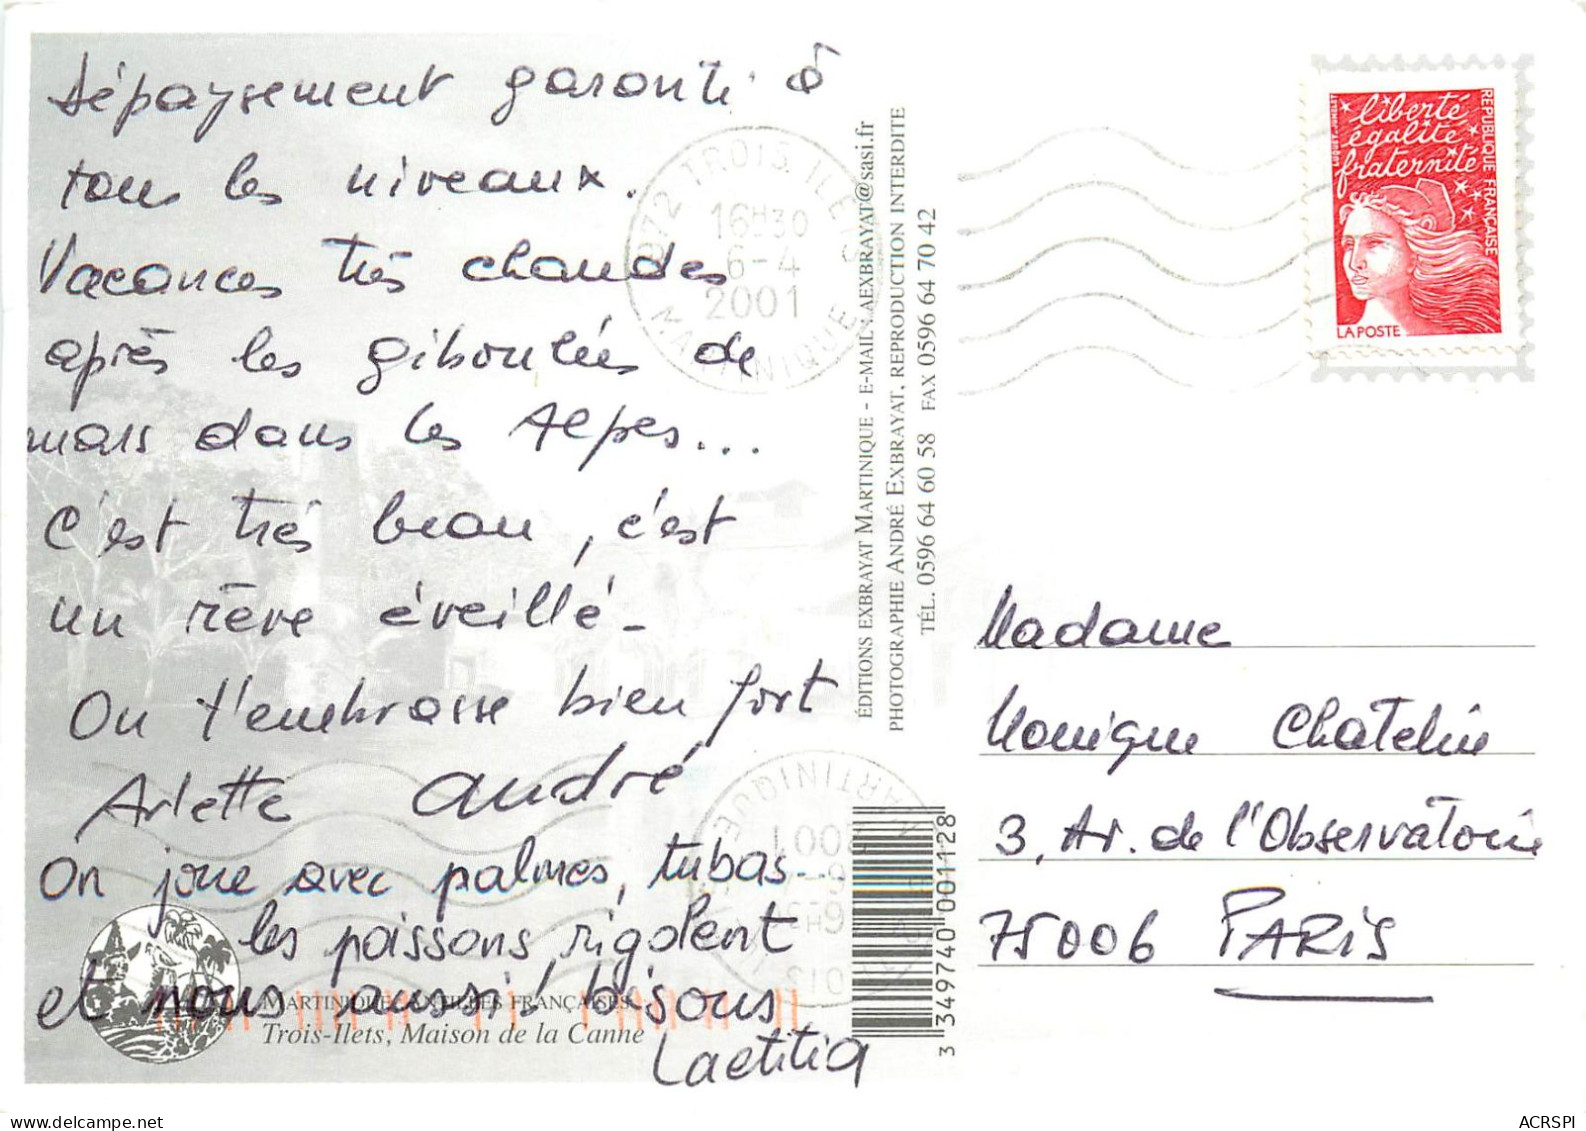 dépaysement garanti à
tous les niveaux.
Vacances très chaudes
après les giboulées de
mars dans les Alpes...
C'est très beau, c'est
un rêve éveillé -
On t'embrasse bien fort
Arlette André
On joue avec palmes, tubas...
les poissons rigolent
et nous aussi! bisous
Laetitia
MARTINIQUE - ANTILLES FRANÇAISES
Trois-Ilets, Maison de la Canne
972 TROIS ILETS
16H30
6-4
2001
MARTINIQUE
ÉDITIONS EXBRAYAT MARTINIQUE - E-MAIL : AEXBRAYAT@sasi.fr
PHOTOGRAPHIE ANDRÉ EXBRAYAT. REPRODUCTION INTERDITE
TÉL. 0596 64 60 58 FAX 0596 64 70 42
3 349740 001128
liberté
égalité
fraternité
RÉPUBLIQUE FRANÇAISE
LA POSTE
Madame
Monique Chatelin
3, Av. de l'Observatoire
75006 PARIS
ACRSPI